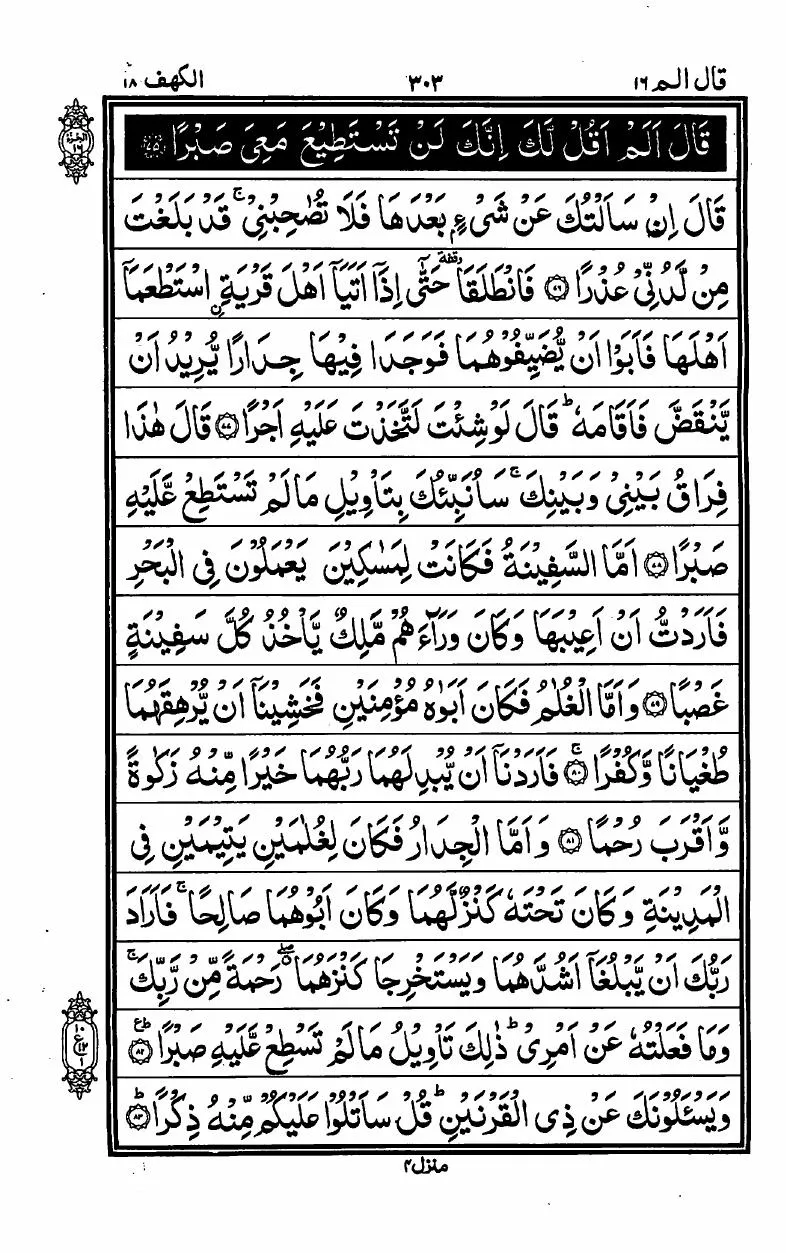 قال الم ١٦ ٣٠٣ الكهف ١٨
الجزء ١٦
قَالَ اَلَمْ اَقُلْ لَّكَ اِنَّكَ لَنْ تَسْتَطِيْعَ مَعِىَ صَبْرًا ﴿٧٥﴾
قَالَ اِنْ سَاَلْتُكَ عَنْ شَىْءٍۭ بَعْدَهَا فَلَا تُصٰحِبْنِىْ ۚ قَدْ بَلَغْتَ
مِنْ لَّدُنِّىْ عُذْرًا ﴿٧٦﴾ فَانْطَلَقَا ࣞ حَتّٰۤى اِذَاۤ اَتَيَاۤ اَهْلَ قَرْيَةِ ۨاسْتَطْعَمَاۤ
اَهْلَهَا فَاَبَوْا اَنْ يُّضَيِّفُوْهُمَا فَوَجَدَا فِيْهَا جِدَارًا يُّرِيْدُ اَنْ
يَّنْقَضَّ فَاَقَامَهٗ ؕ قَالَ لَوْ شِئْتَ لَتَّخَذْتَ عَلَيْهِ اَجْرًا ﴿٧٧﴾ قَالَ هٰذَا
فِرَاقُ بَيْنِىْ وَبَيْنِكَ ۚ سَاُنَبِّئُكَ بِتَاْوِيْلِ مَا لَمْ تَسْتَطِعْ عَّلَيْهِ
صَبْرًا ﴿٧٨﴾ اَمَّا السَّفِيْنَةُ فَكَانَتْ لِمَسٰكِيْنَ يَعْمَلُوْنَ فِى الْبَحْرِ
فَاَرَدْتُّ اَنْ اَعِيْبَهَا وَكَانَ وَرَآءَهُمْ مَّلِكٌ يَّاْخُذُ كُلَّ سَفِيْنَةٍ
غَصْبًا ﴿٧٩﴾ وَاَمَّا الْغُلٰمُ فَكَانَ اَبَوٰهُ مُؤْمِنَيْنِ فَخَشِيْنَاۤ اَنْ يُّرْهِقَهُمَا
طُغْيَانًا وَّكُفْرًا ۚ ﴿٨٠﴾ فَاَرَدْنَاۤ اَنْ يُّبْدِلَهُمَا رَبُّهُمَا خَيْرًا مِّنْهُ زَكٰوةً
وَّاَقْرَبَ رُحْمًا ﴿٨١﴾ وَاَمَّا الْجِدَارُ فَكَانَ لِغُلٰمَيْنِ يَتِيْمَيْنِ فِى
الْمَدِيْنَةِ وَكَانَ تَحْتَهٗ كَنْزٌ لَّهُمَا وَكَانَ اَبُوْهُمَا صَالِحًا ۚ فَاَرَادَ
رَبُّكَ اَنْ يَّبْلُغَاۤ اَشُدَّهُمَا وَيَسْتَخْرِجَا كَنْزَهُمَا ۖ رَحْمَةً مِّنْ رَّبِّكَ ۚ
وَمَا فَعَلْتُهٗ عَنْ اَمْرِىْ ؕ ذٰلِكَ تَاْوِيْلُ مَا لَمْ تَسْطِعْ عَّلَيْهِ صَبْرًا ؕ ﴿٨٢﴾
١٠ ع ١٢ ١
وَيَسْـَٔلُوْنَكَ عَنْ ذِى الْقَرْنَيْنِ ؕ قُلْ سَاَتْلُوْا عَلَيْكُمْ مِّنْهُ ذِكْرًا ؕ ﴿٨٣﴾
منزل ٤